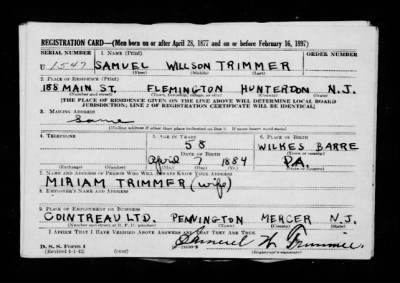 REGISTRATION CARD—(Men born on or after April 28, 1877 and on or before February 16, 1897)
SERIAL NUMBER 1. NAME (Print) ORDER NUMBER
U 1547 SAMUEL WILLSON TRIMMER
(First) (Middle) (Last)
2. PLACE OF RESIDENCE (Print)
188 MAIN ST. FLEMINGTON HUNTERDON N.J.
(Number and street) (Town, township, village, or city) (County) (State)
[THE PLACE OF RESIDENCE GIVEN ON THE LINE ABOVE WILL DETERMINE LOCAL BOARD
JURISDICTION; LINE 2 OF REGISTRATION CERTIFICATE WILL BE IDENTICAL]
3. MAILING ADDRESS
Same
[Mailing address if other than place indicated on line 2. If same insert word same]
4. TELEPHONE 5. AGE IN YEARS 6. PLACE OF BIRTH
58 WILKES BARRE
DATE OF BIRTH (Town or county)
April 7 1884 PA.
(Exchange) (Number) (Mo.) (Day) (Yr.) (State or country)
7. NAME AND ADDRESS OF PERSON WHO WILL ALWAYS KNOW YOUR ADDRESS
MIRIAM TRIMMER (wife)
8. EMPLOYER'S NAME AND ADDRESS
9. PLACE OF EMPLOYMENT OR BUSINESS
COINTREAU LTD. PENNINGTON MERCER N.J.
(Number and street or R. F. D. number) (Town) (County) (State)
I AFFIRM THAT I HAVE VERIFIED ABOVE ANSWERS AND THAT THEY ARE TRUE.
D. S. S. Form 1
(Revised 4-1-42) (over) Samuel W. Trimmer
(Registrant's signature)